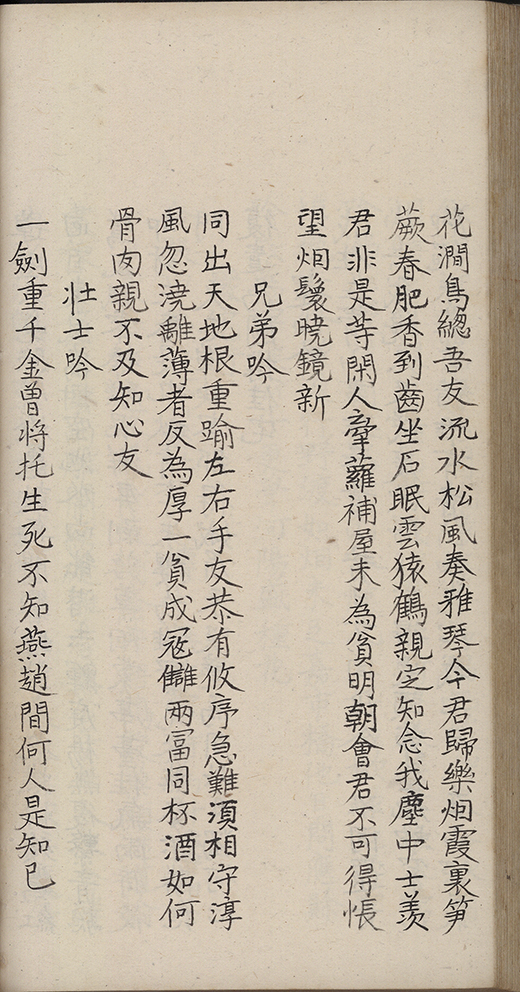 花澗鳥緫吾友流水松風奏雅琴今君歸樂烟霞裏笋
蕨春肥香到齒坐石眠雲猿鶴親定知念我塵中士羡
君非是等閑人牽蘿補屋未為貧明朝會君不可得悵
望烟鬟曉鏡新
兄弟吟
同出天地根重踰左右手友恭有攸序急難須相守淳
風忽澆離薄者反為厚一貧成冦讎兩富同杯酒如何
骨肉親不及知心友
壮士吟
一劍重千金曽將托生死不知燕趙間何人是知已